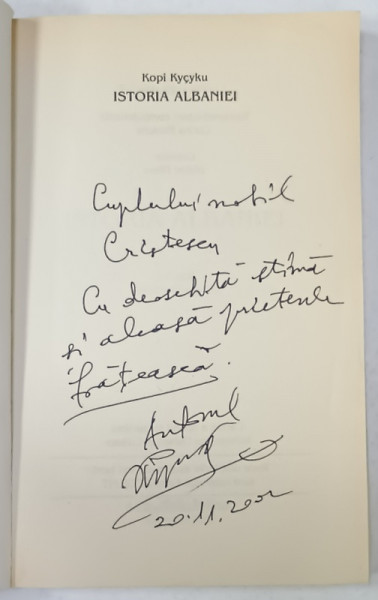 Kopi Kyçyku
ISTORIA ALBANIEI
Cuplului nobil
Cristescu
Cu deosebită stimă
și aleasă prietenie
frățească.
Autorul
20.11.2002